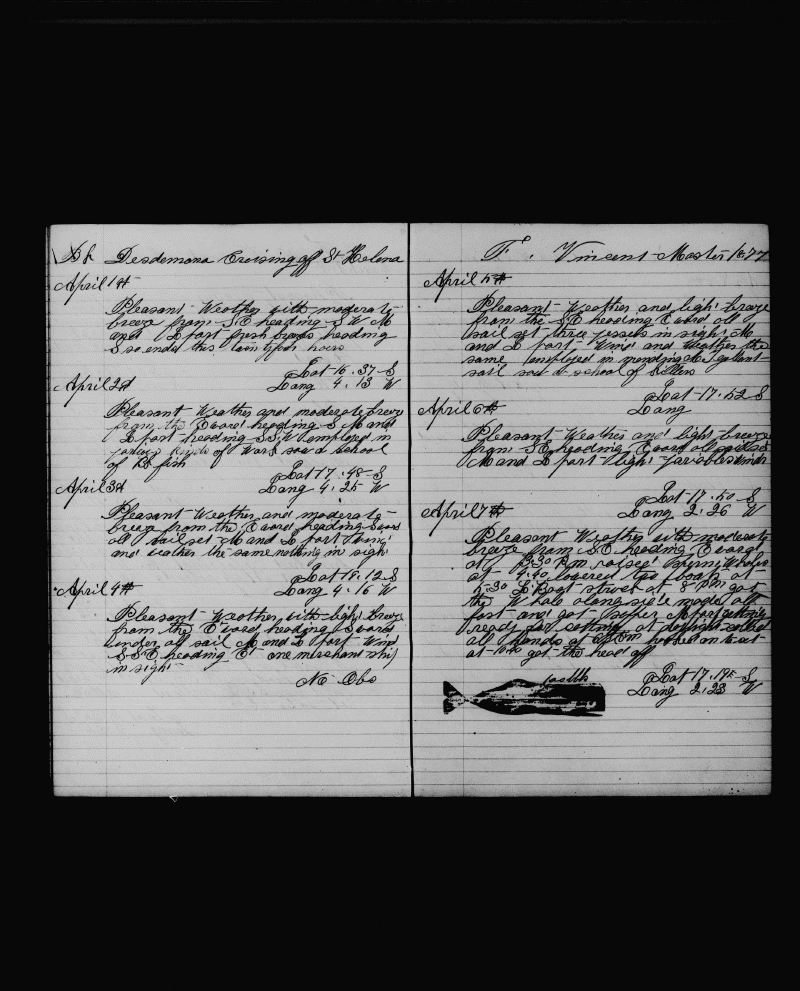 Desdemona Cruising off St Helena
April 1st
Pleasant Weather with moderate
breeze from S.E heading S W M
and L part fresh breeze heading
S so ends this twenty four hours
Lat 16.37 S
Long 4.13 W
April 2d
Pleasant Weather and moderate breeze
from the E ward heading S M and
L part heading S S W employed in
kinds of work saw a school
of fish
Lat 17.48 S
Long 4.25 W
April 3d
Pleasant Weather and moderate
breeze from the E ward heading S ward
all sail set M and L part wind
and weather the same nothing in sight
Lat 18.12 S
Long 4.16 W
April 4th
Pleasant Weather with light breeze
from the E ward heading S ward
under all sail M and L part Wind
S S E heading E one merchant ship
in sight
No Obs
F. Vincent Master 1877
April 5th
Pleasant Weather and light breeze
from the S E heading E ward all
sail set three vessels in sight M
and L part Wind and Weather the
same employed in mending M T gallant
sail saw a school of killers
Lat 17.52 S
Long
April 6th
Pleasant Weather and light breeze
from S E heading E ward all sail set
M and L part light variable winds
Lat 17.50 S
Long 2.26 W
April 7th
Pleasant Weather with moderate
breeze from S E heading E ward
at 3.30 P.m raised Sperm Whales
at 4.40 lowered the boats at
5.30 L Boat struck at 8 P m got
the Whale alongside made all
fast and got supper M part getting
ready for cutting at daylight called
all hands at hooked on to cut
at got the head off
Lat 17.19 S
Long 2.23 W